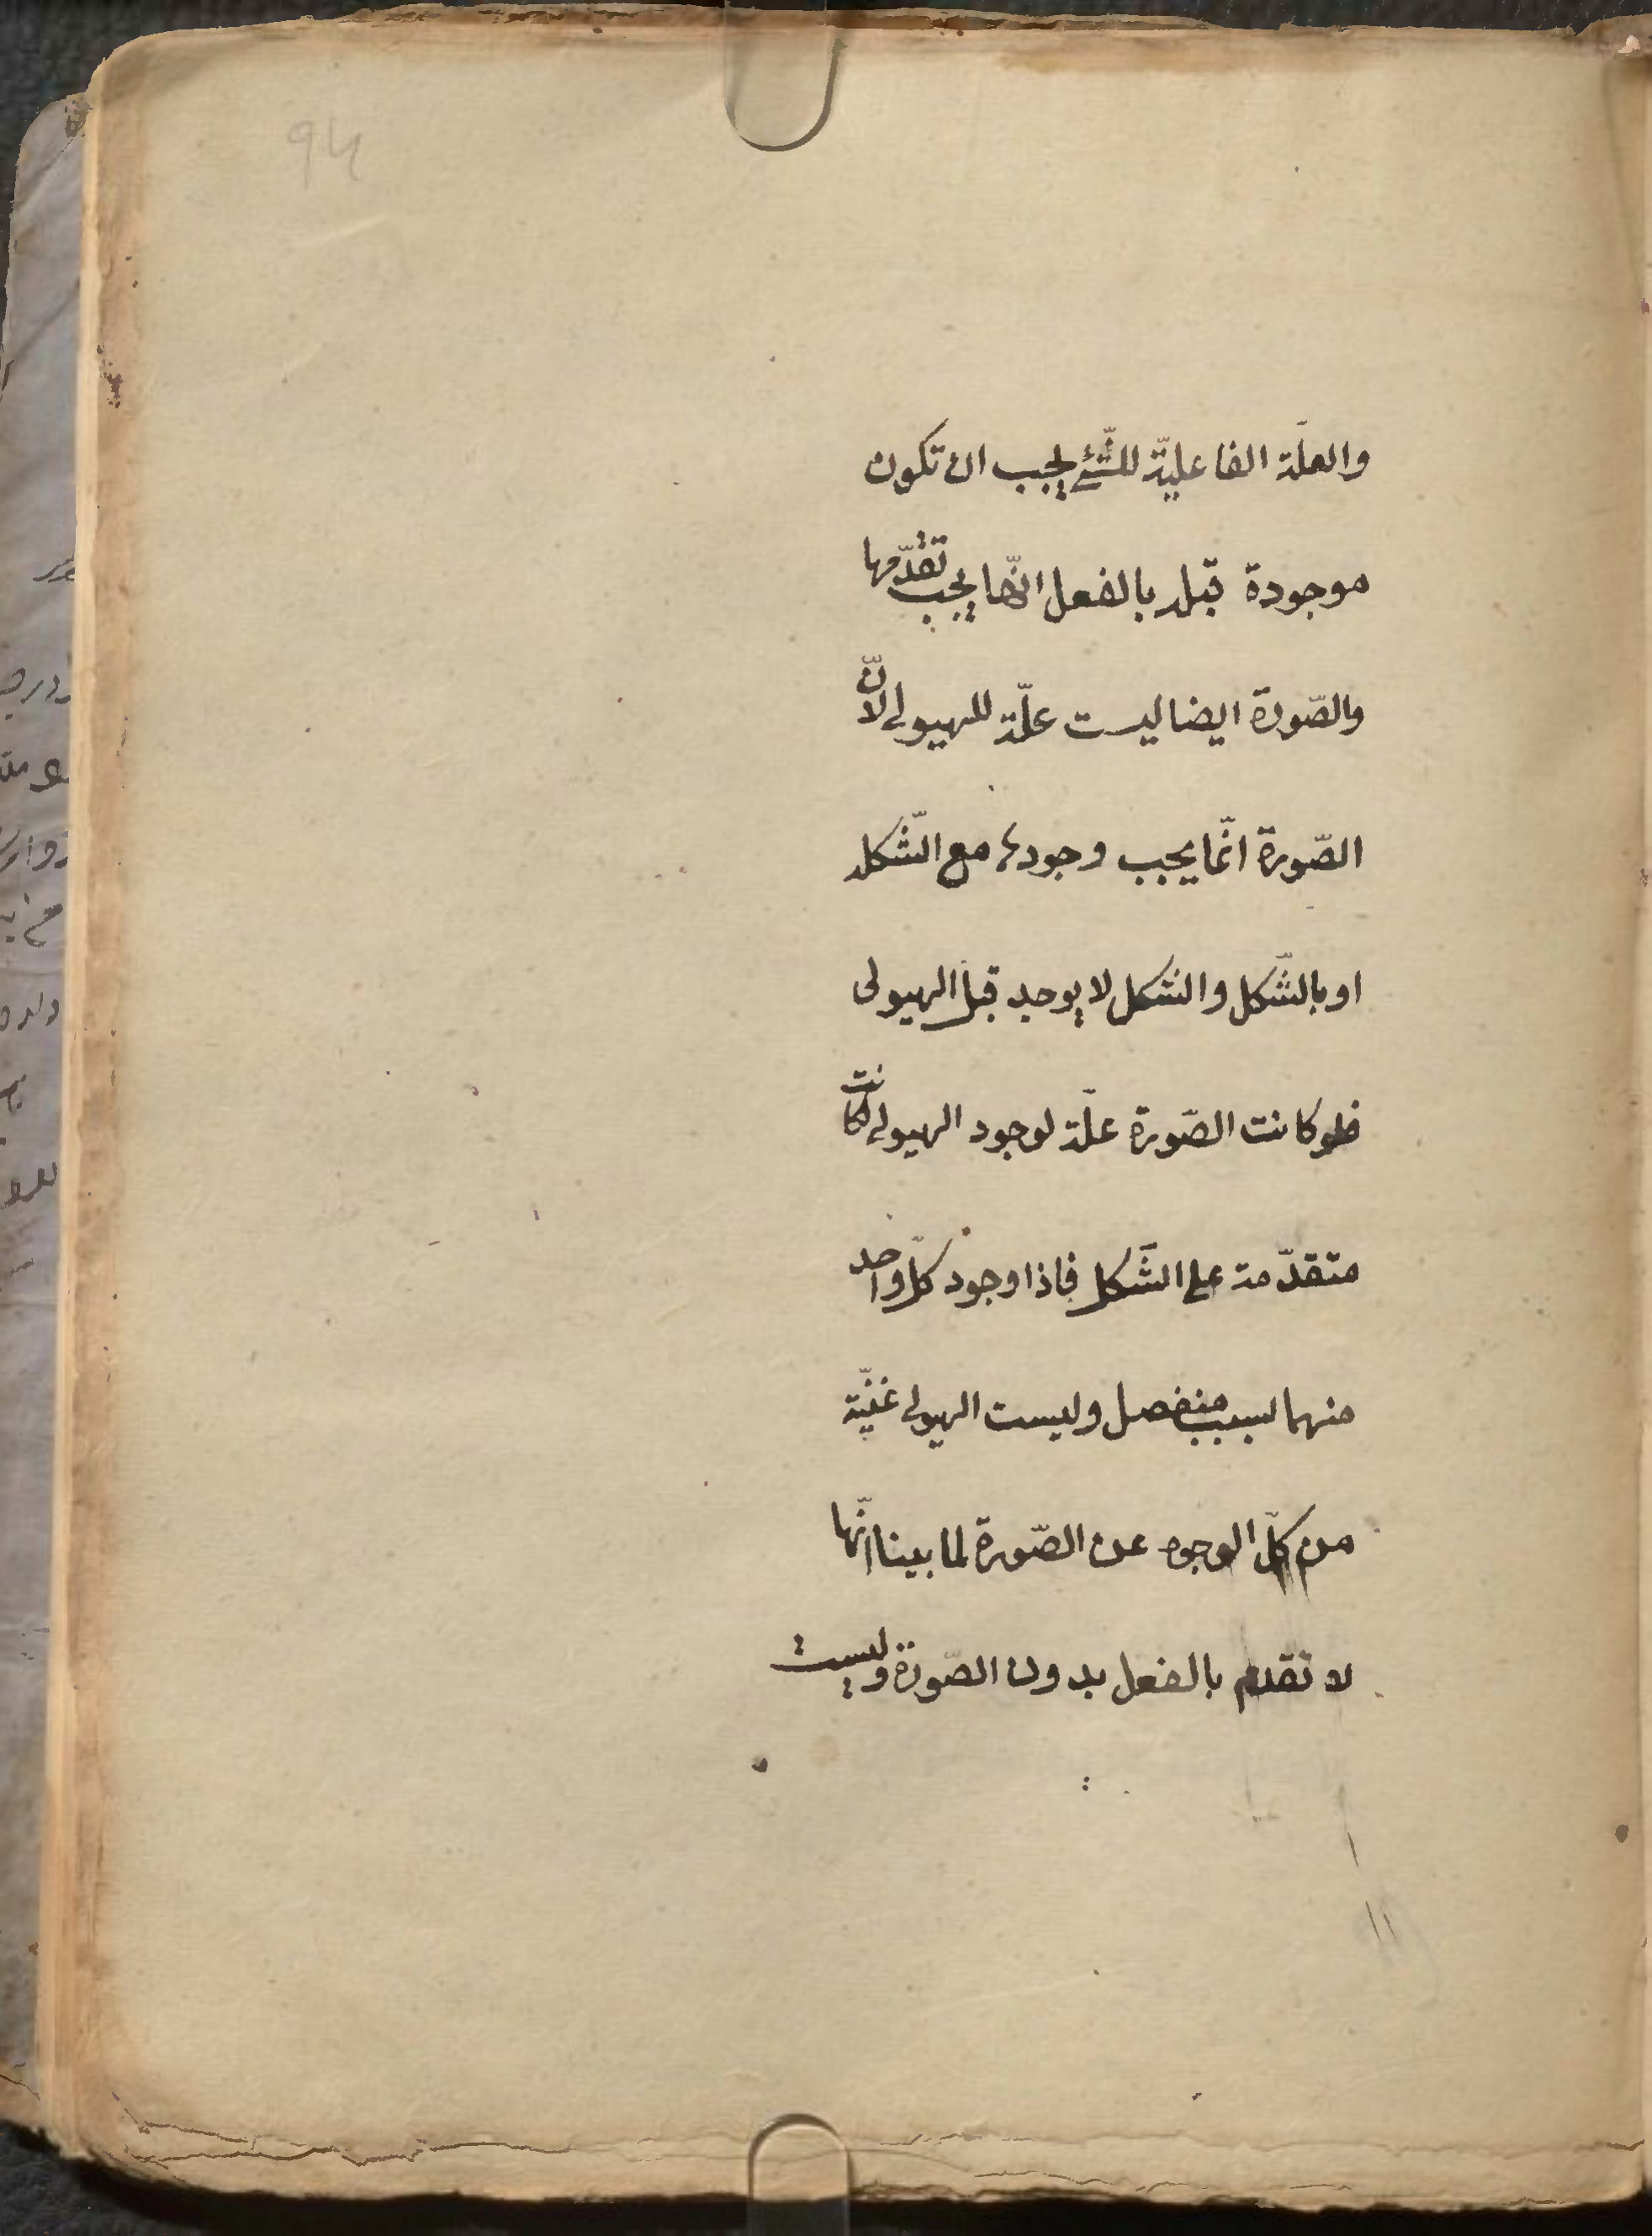 94
والعلّة الفاعليّة للشّئ يجب ان تكون
موجودة قبله بالفعل انّها يجب تقدّمها
والصّورة ايضا ليست علّة للهيولى لانّ
الصّورة انّما يجب وجودها مع الشّكل
او بالشّكل والشكل لا يوجد قبل الهيولى
فلو كانت الصّورة علّة لوجود الهيولى لكانت
متقدّمة على الشّكل فاذا وجود كلّ واحد
منهما لسبب منفصل وليست الهيولى غنيّة
من كلّ الوجوه عن الصّورة لما بينا انّها
لا تقدم بالفعل بدون الصّورة وليست